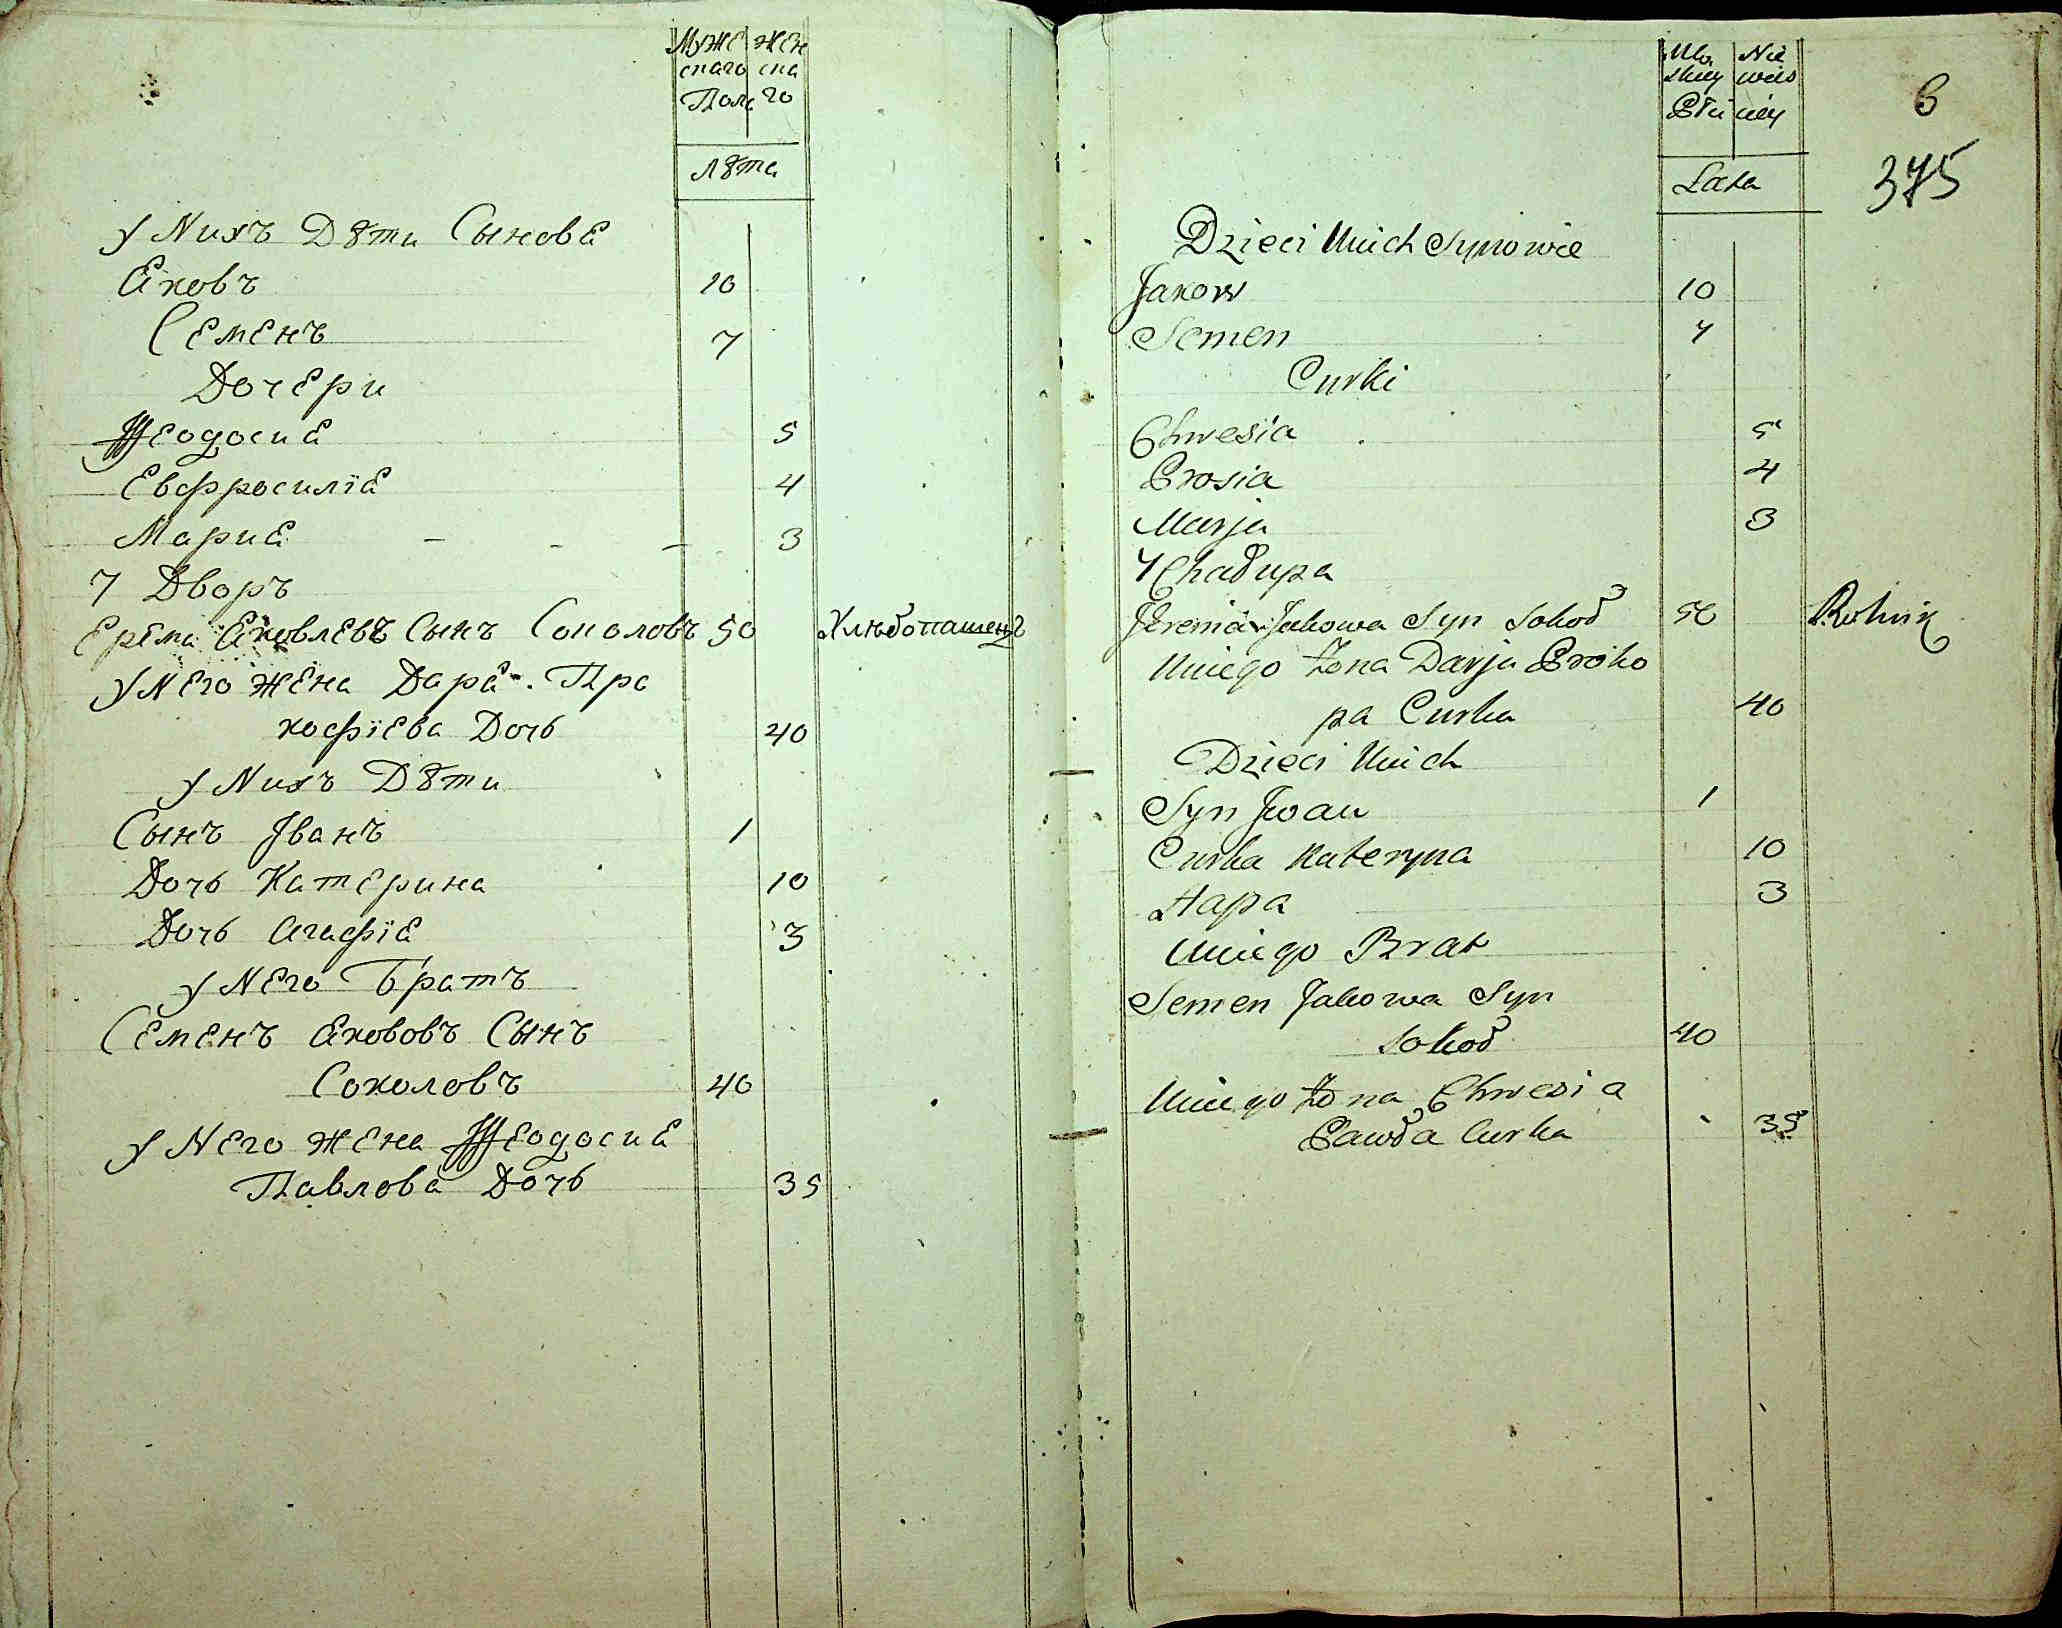 Муже жен
скаго ска
Пола го
лѣта
у Nихъ Дѣти Сыновѣ
Еяковъ 10
Семенъ 7
Дочери
Ѳеодосиѣ 5
Евфросиліѣ 4
Мариѣ 3
7 Дворъ
Ерема Яковлевъ Сынъ Соколовъ 50 Хлѣбопашецъ
у Nего жена Даря Про
кофіева Дочь 40
у Nихъ Дѣти
Сынъ Іванъ 1
Дочь Катерина 10
Дочь Агафіѣ 3
у Nего Братъ
Семенъ Якововъ Сынъ
Соколовъ 40
у Nего жена Ѳеодосиѣ
Павлова Дочь 35
Mę Nie
skiey wieś
Płci ciey
Lata
6
375
Dzieci Unich Synowie
Jakow 10
Semen 7
Curki
Chwesia 5
Prosia 4
Marja 3
7 Chałupa
Jeremia Jakowa Syn Sokoł 50 Rolnik
Uniego Żona Darja Proko
pa Curka 40
Dzieci Unich
Syn Iwan 1
Curka Kateryna 10
Hapa 3
Uniego Brat
Semen Jakowa Syn
Sokoł 40
Uniego Żona Chwesia
Pawła Curka 35